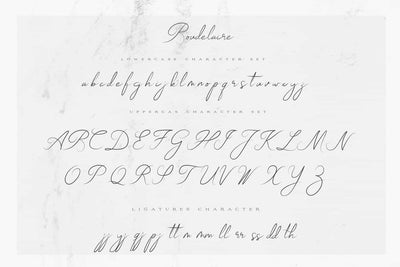 Roudelaire
LOWERCASE CHARACTER SET
abcdefghijklmnopqrstuvwxyz
UPPERCAS CHARACTER SET
ABCDEFGHIJKLMN
OPQRSTUVWXYZ
LIGATURES CHARACTER
jj yj gj pj tt m mm ll rr ss dd th